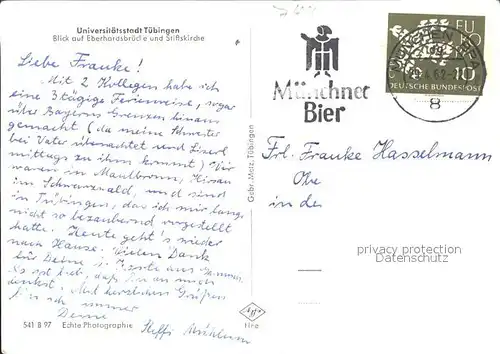 Universitätsstadt Tübingen
Blick auf Eberhardsbrücke und Stiftskirche
Liebe Frauke!
Mit 2 Kollegen habe ich
eine 3tägige Ferienreise, sogar
über Bayerns Grenzen hinaus
gemacht (da meine Schwester
bei Vater übernachtet und
mittags zu ihm kommt) Wir
waren in Maulbronn, Hirsau
im Schwarzwald, und sind
in Tübingen, das ich mir lange
nicht so bezaubernd vorgestellt
hatte. Heute geht's wieder
nach Hause. Vielen Dank
für Deine Karte aus
lieb, daß Du an mich
denkst. Mit herzlichen Grüßen
bin ich immer
Deine
Steffi
541 B 97 Echte Photographie
Gebr. Metz, Tübingen
Agfa
Münchner
Bier
MÜNCHEN
8
EUROPA
10
DEUTSCHE BUNDESPOST
Frl. Frauke Hasselmann
Obe
in der
privacy protection
Datenschutz